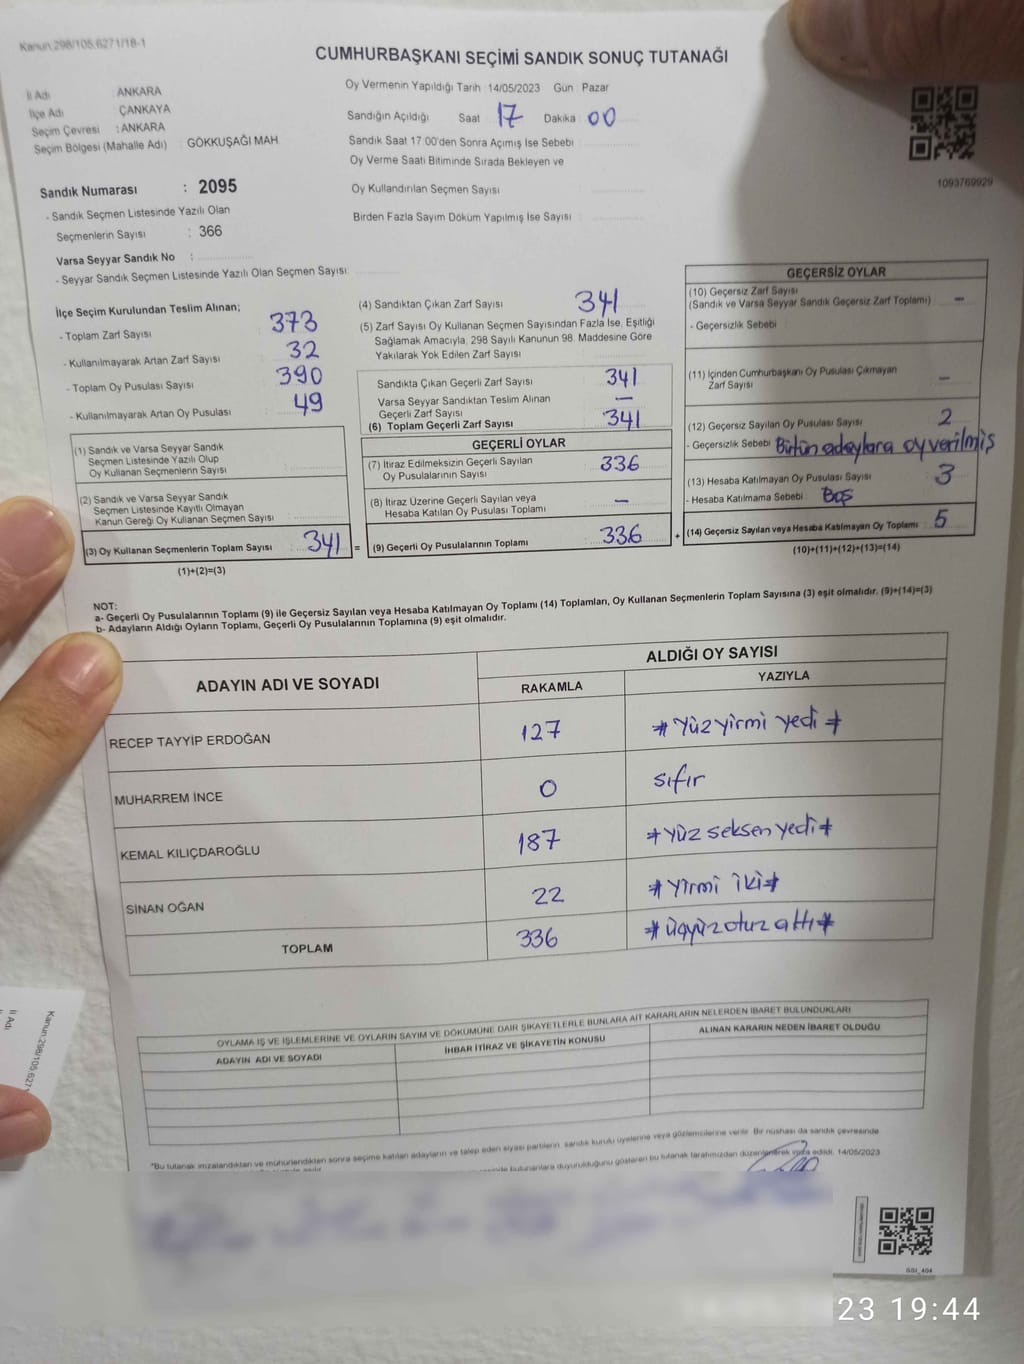 Kanun.298/105.6271/18-1
CUMHURBAŞKANI SEÇİMİ SANDIK SONUÇ TUTANAĞI
İl Adı : ANKARA
İlçe Adı : ÇANKAYA
Seçim Çevresi : ANKARA
Seçim Bölgesi (Mahalle Adı) : GÖKKUŞAĞI MAH
Oy Vermenin Yapıldığı Tarih : 14/05/2023 Gün : Pazar
Sandığın Açıldığı Saat 17 Dakika : 00
Sandık Saat 17:00'den Sonra Açımış İse Sebebi :
Oy Verme Saati Bitiminde Sırada Bekleyen ve
Oy Kullandırılan Seçmen Sayısı :
Birden Fazla Sayım Döküm Yapılmış İse Sayısı :
1093769929
Sandık Numarası : 2095
- Sandık Seçmen Listesinde Yazılı Olan
Seçmenlerin Sayısı : 366
Varsa Seyyar Sandık No :
- Seyyar Sandık Seçmen Listesinde Yazılı Olan Seçmen Sayısı:
İlçe Seçim Kurulundan Teslim Alınan;
- Toplam Zarf Sayısı : 373
- Kullanılmayarak Artan Zarf Sayısı : 32
- Toplam Oy Pusulası Sayısı : 390
- Kullanılmayarak Artan Oy Pusulası : 49
(1) Sandık ve Varsa Seyyar Sandık
Seçmen Listesinde Yazılı Olup
Oy Kullanan Seçmenlerin Sayısı :
(2) Sandık ve Varsa Seyyar Sandık
Seçmen Listesinde Kayıtlı Olmayan
Kanun Gereği Oy Kullanan Seçmen Sayısı :
(3) Oy Kullanan Seçmenlerin Toplam Sayısı : 341 =
(1)+(2)=(3)
(4) Sandıktan Çıkan Zarf Sayısı : 341
(5) Zarf Sayısı Oy Kullanan Seçmen Sayısından Fazla İse, Eşitliği
Sağlamak Amacıyla, 298 Sayılı Kanunun 98. Maddesine Göre
Yakılarak Yok Edilen Zarf Sayısı :
Sandıkta Çıkan Geçerli Zarf Sayısı : 341
Varsa Seyyar Sandıktan Teslim Alınan
Geçerli Zarf Sayısı : –
(6) Toplam Geçerli Zarf Sayısı : 341
GEÇERLİ OYLAR
(7) İtiraz Edilmeksizin Geçerli Sayılan
Oy Pusulalarının Sayısı : 336
(8) İtiraz Üzerine Geçerli Sayılan veya
Hesaba Katılan Oy Pusulası Toplamı : –
(9) Geçerli Oy Pusulalarının Toplamı : 336 +
GEÇERSİZ OYLAR
(10) Geçersiz Zarf Sayısı
(Sandık ve Varsa Seyyar Sandık Geçersiz Zarf Toplamı) : –
- Geçersizlik Sebebi :
(11) İçinden Cumhurbaşkanı Oy Pusulası Çıkmayan
Zarf Sayısı : –
(12) Geçersiz Sayılan Oy Pusulası Sayısı : 2
- Geçersizlik Sebebi : Bütün adaylara oy verilmiş
(13) Hesaba Katılmayan Oy Pusulası Sayısı : 3
- Hesaba Katılmama Sebebi : Boş
(14) Geçersiz Sayılan veya Hesaba Katılmayan Oy Toplamı : 5
(10)+(11)+(12)+(13)=(14)
NOT:
a- Geçerli Oy Pusulalarının Toplamı (9) ile Geçersiz Sayılan veya Hesaba Katılmayan Oy Toplamı (14) Toplamları, Oy Kullanan Seçmenlerin Toplam Sayısına (3) eşit olmalıdır. (9)+(14)=(3)
b- Adayların Aldığı Oyların Toplamı, Geçerli Oy Pusulalarının Toplamına (9) eşit olmalıdır.
ADAYIN ADI VE SOYADI
ALDIĞI OY SAYISI
RAKAMLA YAZIYLA
RECEP TAYYİP ERDOĞAN 127 # Yüz yirmi yedi #
MUHARREM İNCE 0 sıfır
KEMAL KILIÇDAROĞLU 187 # Yüz seksen yedi #
SİNAN OĞAN 22 # Yirmi iki #
TOPLAM 336 # üçyüz otuz altı #
OYLAMA İŞ VE İŞLEMLERİNE VE OYLARIN SAYIM VE DÖKÜMÜNE DAİR ŞİKAYETLERLE BUNLARA AİT KARARLARIN NELERDEN İBARET BULUNDUKLARI
ADAYIN ADI VE SOYADI İHBAR İTİRAZ VE ŞİKAYETİN KONUSU ALINAN KARARIN NEDEN İBARET OLDUĞU
*Bu tutanak imzalandıktan ve mühürlendikten sonra seçime katılan adayların ve talep eden siyasi partilerin sandık kurulu üyelerine veya gözlemcilerine verilir. Bir nüshası da sandık çevresinde
bulunanlara duyurulduğunu gösteren bu tutanak tarafımızdan düzenlenerek imza edildi. 14/05/2023
SSI_404
23 19:44
Kanun.298/105.627
İl Adı